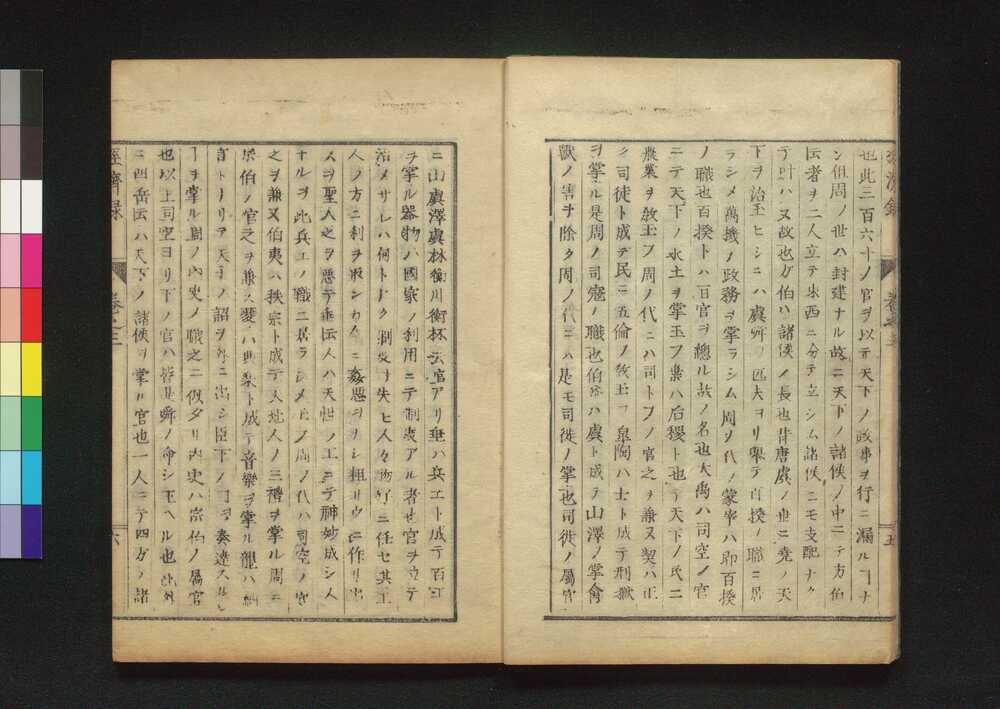 也此三百六十ノ官ヲ以テ天下ノ政事ヲ行ニ漏ルヿナ
シ但周ノ世ハ封建ナル故ニ天下ノ諸侯ノ中ニテ方伯
云者ヲ二人立テ東西ニ分テ立シム諸侯ニモ支配ナク
テ叶ハヌ故也方伯ハ諸侯ノ長也昔唐虞ノ世ニ堯ノ天
下ヲ治玉ヒシニハ虞舜ノ匹夫ヨリ擧テ百揆ノ職ニ居
ラシメ萬機ノ政務ヲ掌ラシム周ノ代ノ冢宰ハ即百揆
ノ職也百揆トハ百官ヲ總ル故ノ名也大禹ハ司空ノ官
ニテ天下ノ水土ヲ掌玉フ棄ハ后稷ト也テ天下ノ民ニ
農業ヲ教玉フ周ノ代ニハ司トフノ官之ヲ兼ヌ契ハ正
ク司徒ト成テ民ニ五倫ノ教玉フ皐陶ハ士ト成テ刑獄
ヲ掌ル是周ノ司寇ノ職也伯益ハ虞ト成テ山澤ノ掌禽
獸ノ害ヲ除ク周ノ代ニハ是モ司徒ノ掌也司徒ノ屬官
五
ニ山虞澤虞林衡川衡杯云官アリ垂ハ共工ト成テ百工
ヲ掌ル器物ハ國家ノ利用ニテ制度アル者也官ヲ立テ
治メサレハ何トナク制度ヲ失ヒ人々物好ニ任セ其工
人ノ方ニ利ヲ取ンカ為ニ姦惡ヲナシ粗リウニ作リ出
スヲ聖人之ヲ惡テ垂云人ハ天性ノ工ニテ神妙成シ人
ナルヲ此共工ノ職ニ居ラシメ玉フ周ノ代ハ司空ノ官
之ヲ兼又伯夷ハ秩宗ト成テ天地人ノ三禮ヲ掌ル周ニ
宗伯ノ官之ヲ兼ス夔ハ典樂ト成テ音樂ヲ掌ル龍ハ納
言トナリテ天子ノ詔ヲ外ニ出シ臣下ノ言ヲ奏達スルし
ヿヲ掌ル周ノ内史ノ職之ニ似タリ内史ハ宗伯ノ屬官
也以上司空ヨリ下ノ官ハ皆是舜ノ命シ玉ヘル也此外
ニ四岳云ハ天下ノ諸侯ヲ掌ル官也一人ニテ四方ノ諸
經濟録
卷之三
六